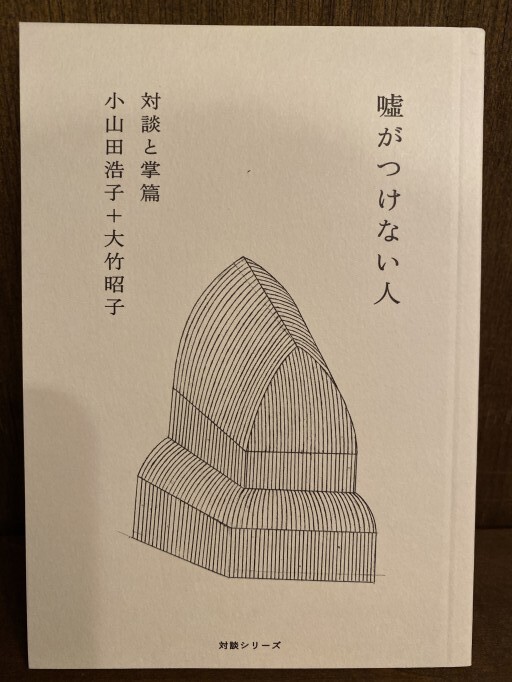 嘘がつけない人
対談と掌篇
小山田浩子＋大竹昭子
対談シリーズ